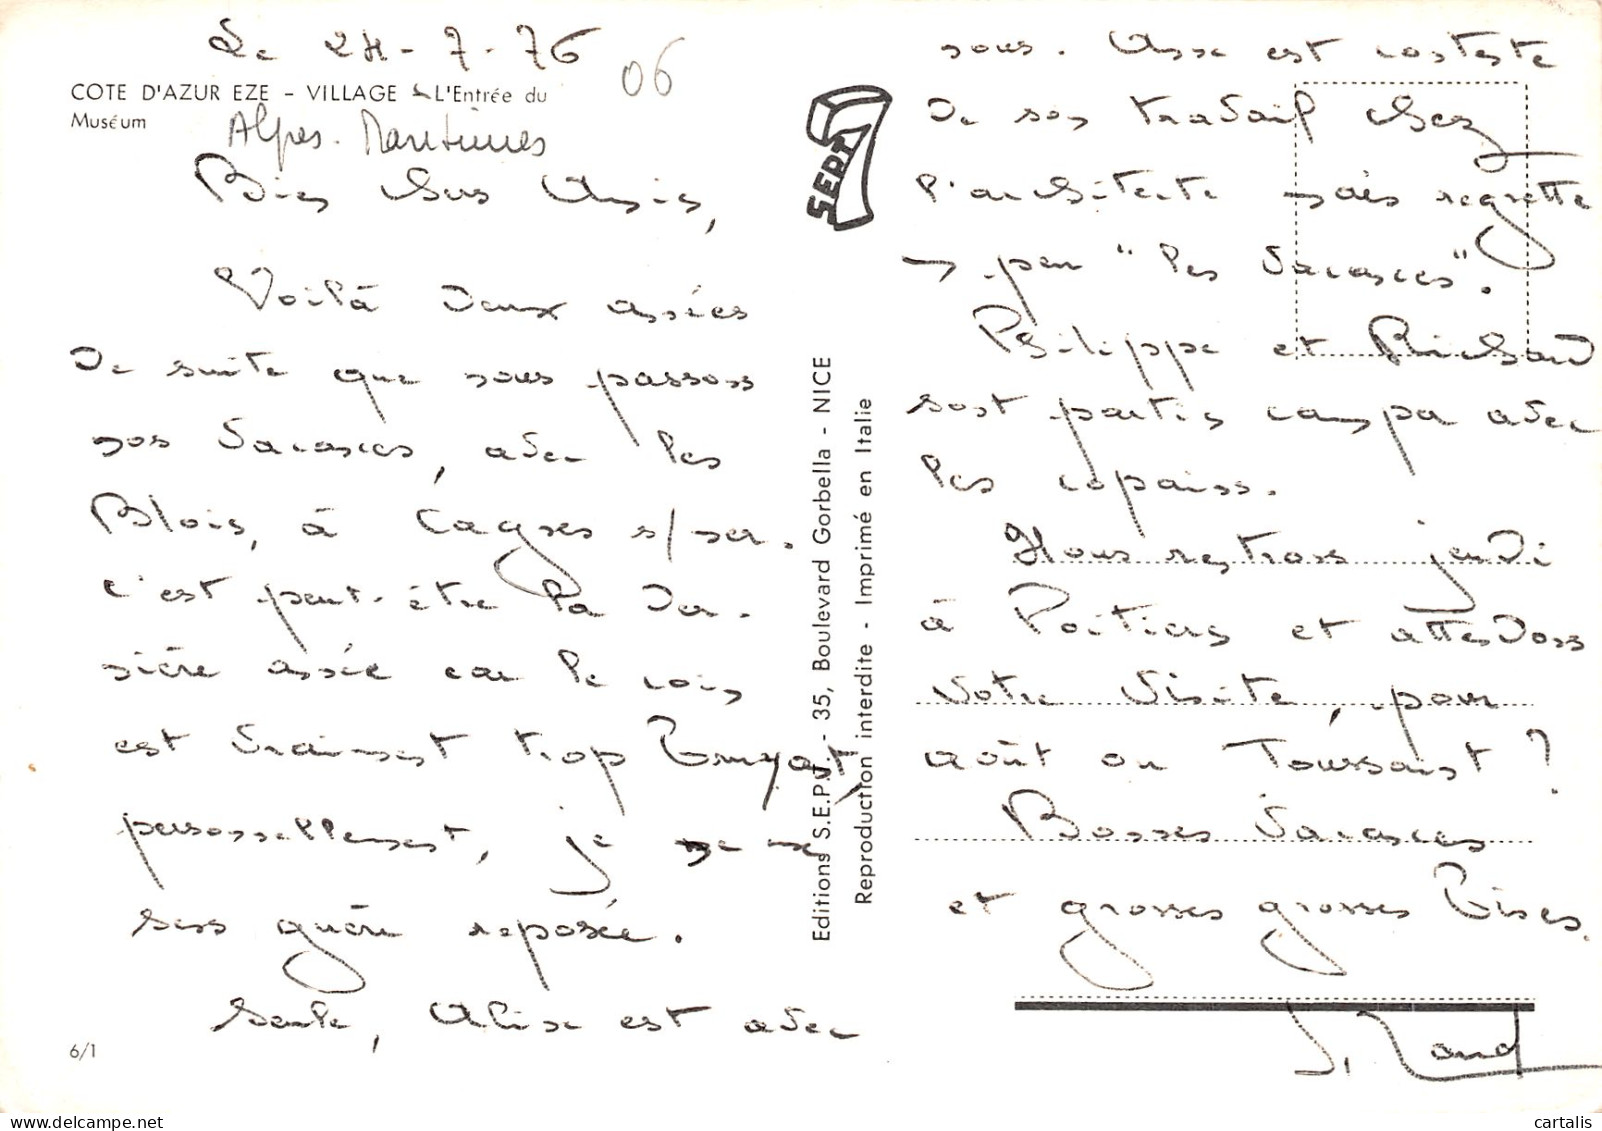 Le 24-7-76
06
COTE D'AZUR EZE - VILLAGE - L'Entrée du
Muséum
Alpes-Maritimes
Bien chers Amis,
Voilà deux années
de suite que nous passons
nos vacances, avec les
Blois, à Cagnes s/mer.
C'est peut-être la der-
nière année car le coin
est vraiment trop bruyant,
personnellement, je ne me
sens guère reposée.
Seule, Aline est avec
6/1
SEPT
Editions S.E.P.T. - 35, Boulevard Gorbella - NICE
Reproduction interdite - Imprimé en Italie
nous. Anne est contente
de son travail chez
l'architecte mais regrette
un peu "les vacances".
Philippe et Richard
sont partis camper avec
les copains.
Nous rentrons jeudi
à Poitiers et attendons
votre visite, pour
août ou Toussaint ?
Bonnes vacances
et grosses grosses bises.